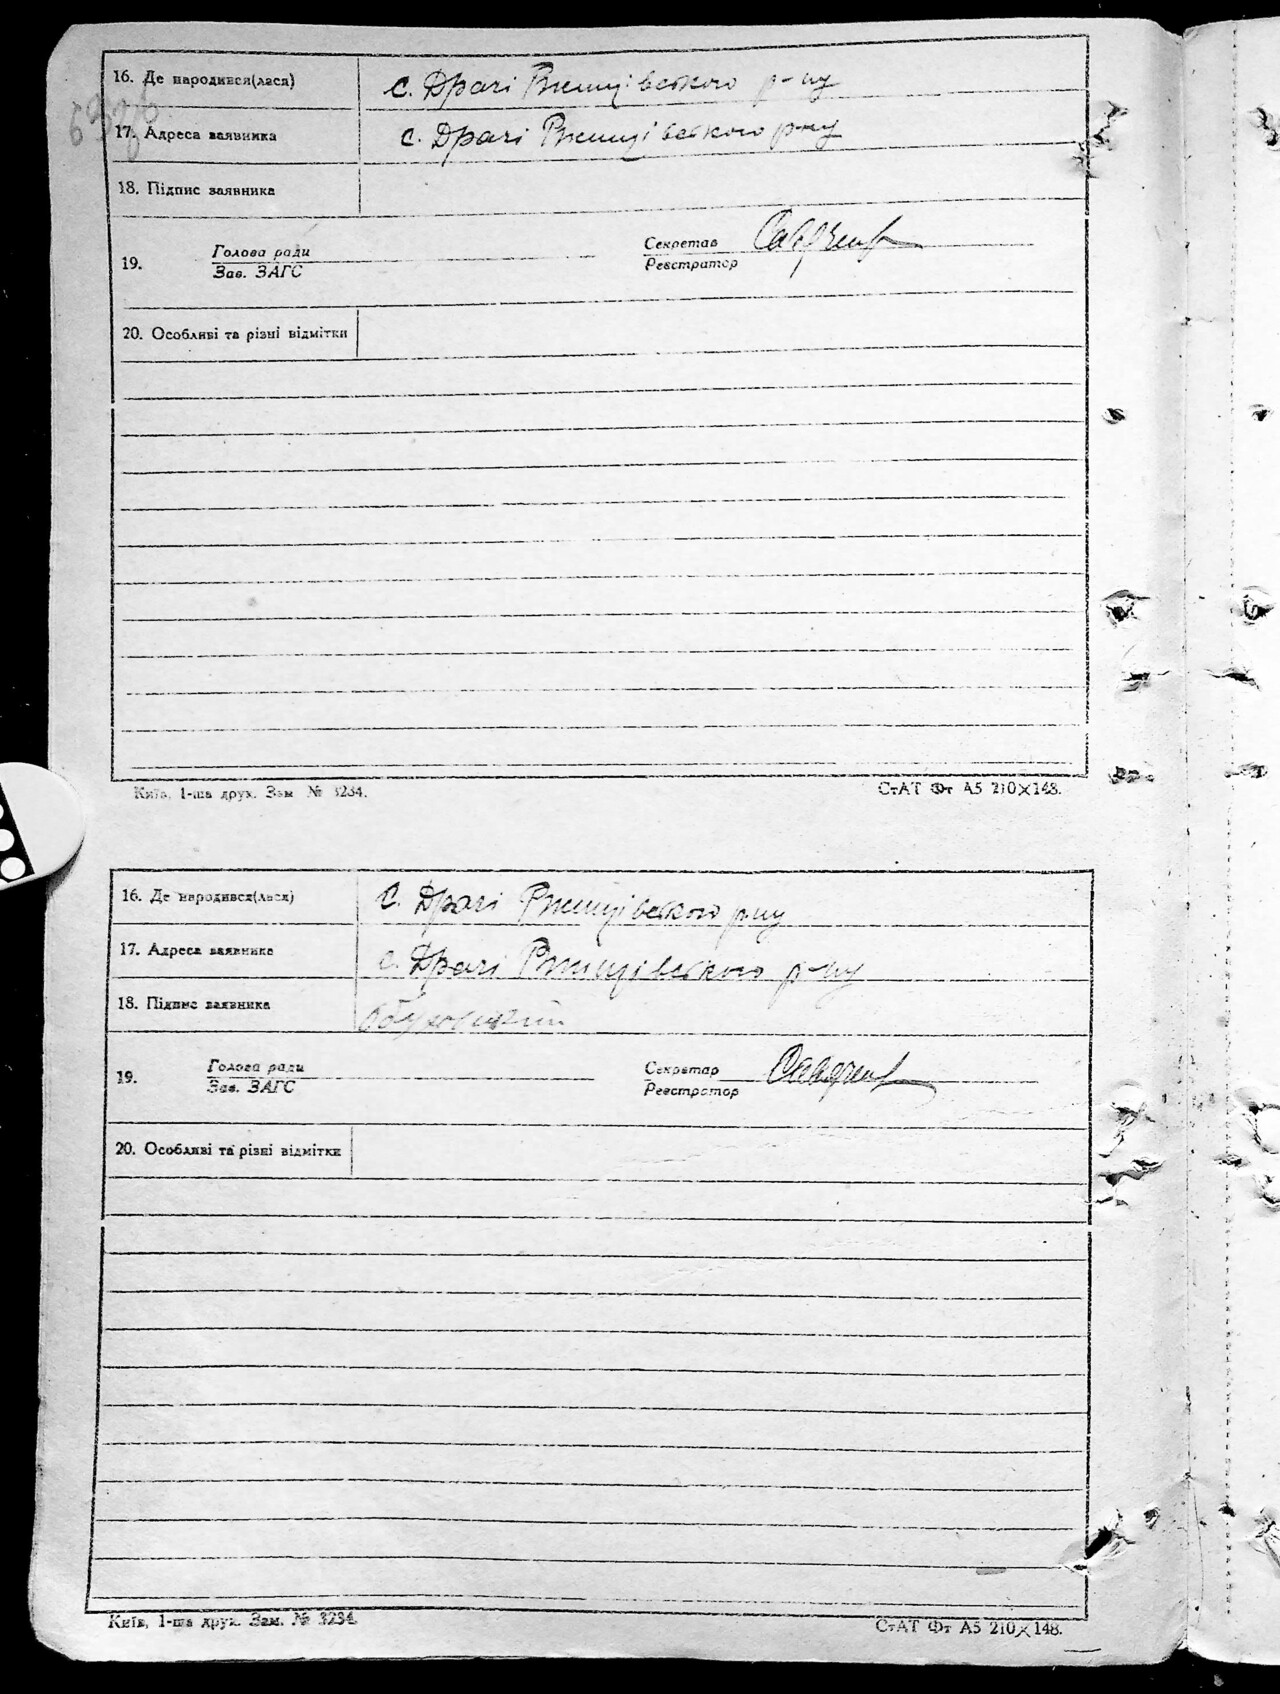 16. Де народився(лася) с. Драчі Ржищівського р-ну
17. Адреса заявника с. Драчі Ржищівського р-ну
18. Підпис заявника
Голова ради Секретар
19.
Зав. ЗАГС Реєстратор
20. Особливі та різні відмітки
Київ, 1-ша друк. Зам № 3234. СтАТ Фт А5 210×148.
16. Де народився(лася) с. Драчі Ржищівського р-ну
17. Адреса заявника с. Драчі Ржищівського р-ну
18. Підпис заявника
Голова ради Секретар
19.
Зав. ЗАГС Реєстратор
20. Особливі та різні відмітки
Київ, 1-ша друк. Зам. № 3234. СтАТ Фт А5 210×148.